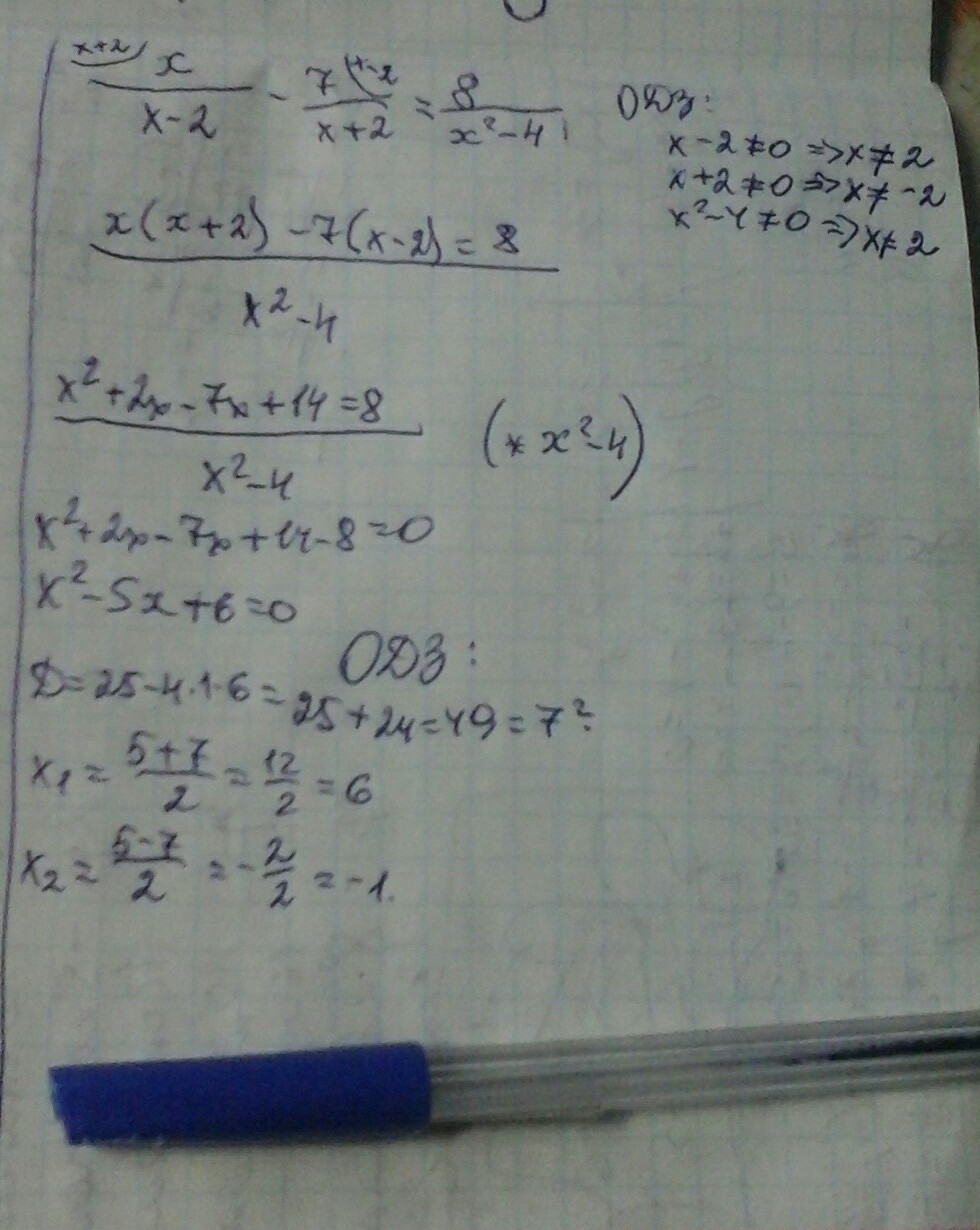 x+2) x / x-2 - 7 (x-2 / x+2 = 8 / x²-4
ОДЗ:
x-2≠0 => x≠2
x+2≠0 => x≠-2
x²-4≠0 => x≠2
x(x+2) -7(x-2) = 8
x²-4
x²+2x-7x+14=8
x²-4
(* x²-4)
x²+2x-7x+14-8=0
x²-5x+6=0
ОДЗ:
D=25-4·1·6=25+24=49=7²
x₁ = 5+7 / 2 = 12 / 2 = 6
x₂ = 5-7 / 2 = -2 / 2 = -1.